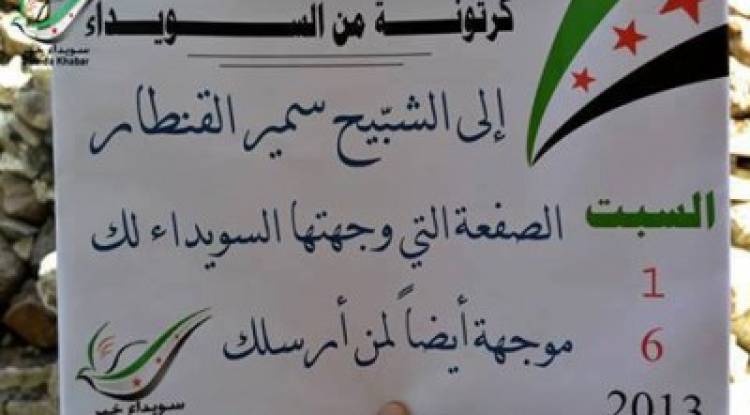 كرتونة من السويداء
إلى الشبّيح سمير القنطار
الصفعة التي وجهتها السويداء لك
موجهة أيضاً لمن أرسلك
السبت
1
6
2013
سويداء خبر
سويداء خبر
Khabar